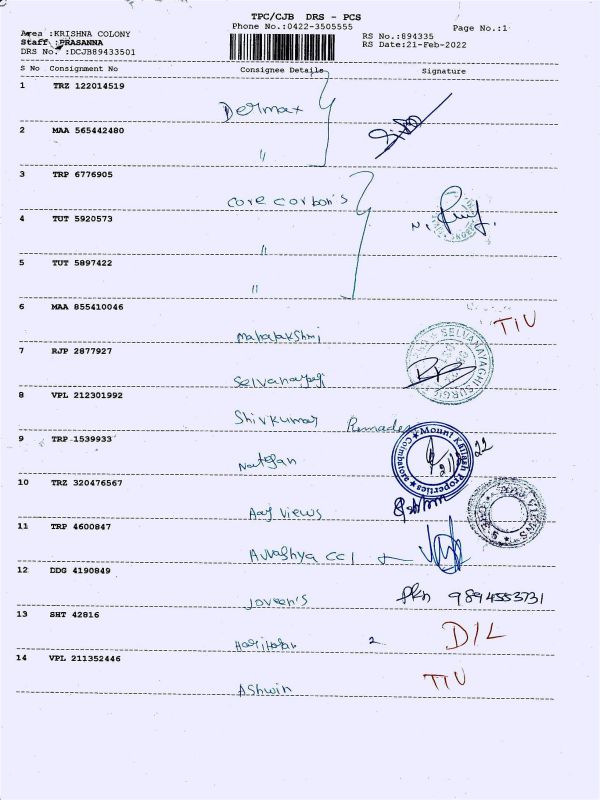 TPC/CJB DRS - PCS
Phone No.:0422-3505555
Page No.:1
Area :KRISHNA COLONY
Staff :PRASANNA
DRS No. :DCJB89433501
RS No.:894335
RS Date:21-Feb-2022
S No Consignment No Consignee Details Signature
1 TRZ 122014519
Dermax
2 MAA 565442480
"
3 TRP 6776905
Core Carbon's
4 TUT 5920573
"
5 TUT 5897422
"
6 MAA 855410046
Mahalakshmi TIU
7 RJP 2877927
Selvanayagi
8 VPL 212301992
Shivkumar
9 TRP 1539933
Natesan
Mount Kailash Properties
Coimbatore
10 TRZ 320476567
Aaj Views
11 TRP 4600847
CCI
12 DDG 4190849
Joveen's Pkn 9894553731
13 SHT 42816
2 D/L
14 VPL 211352446
Ashwin TIU